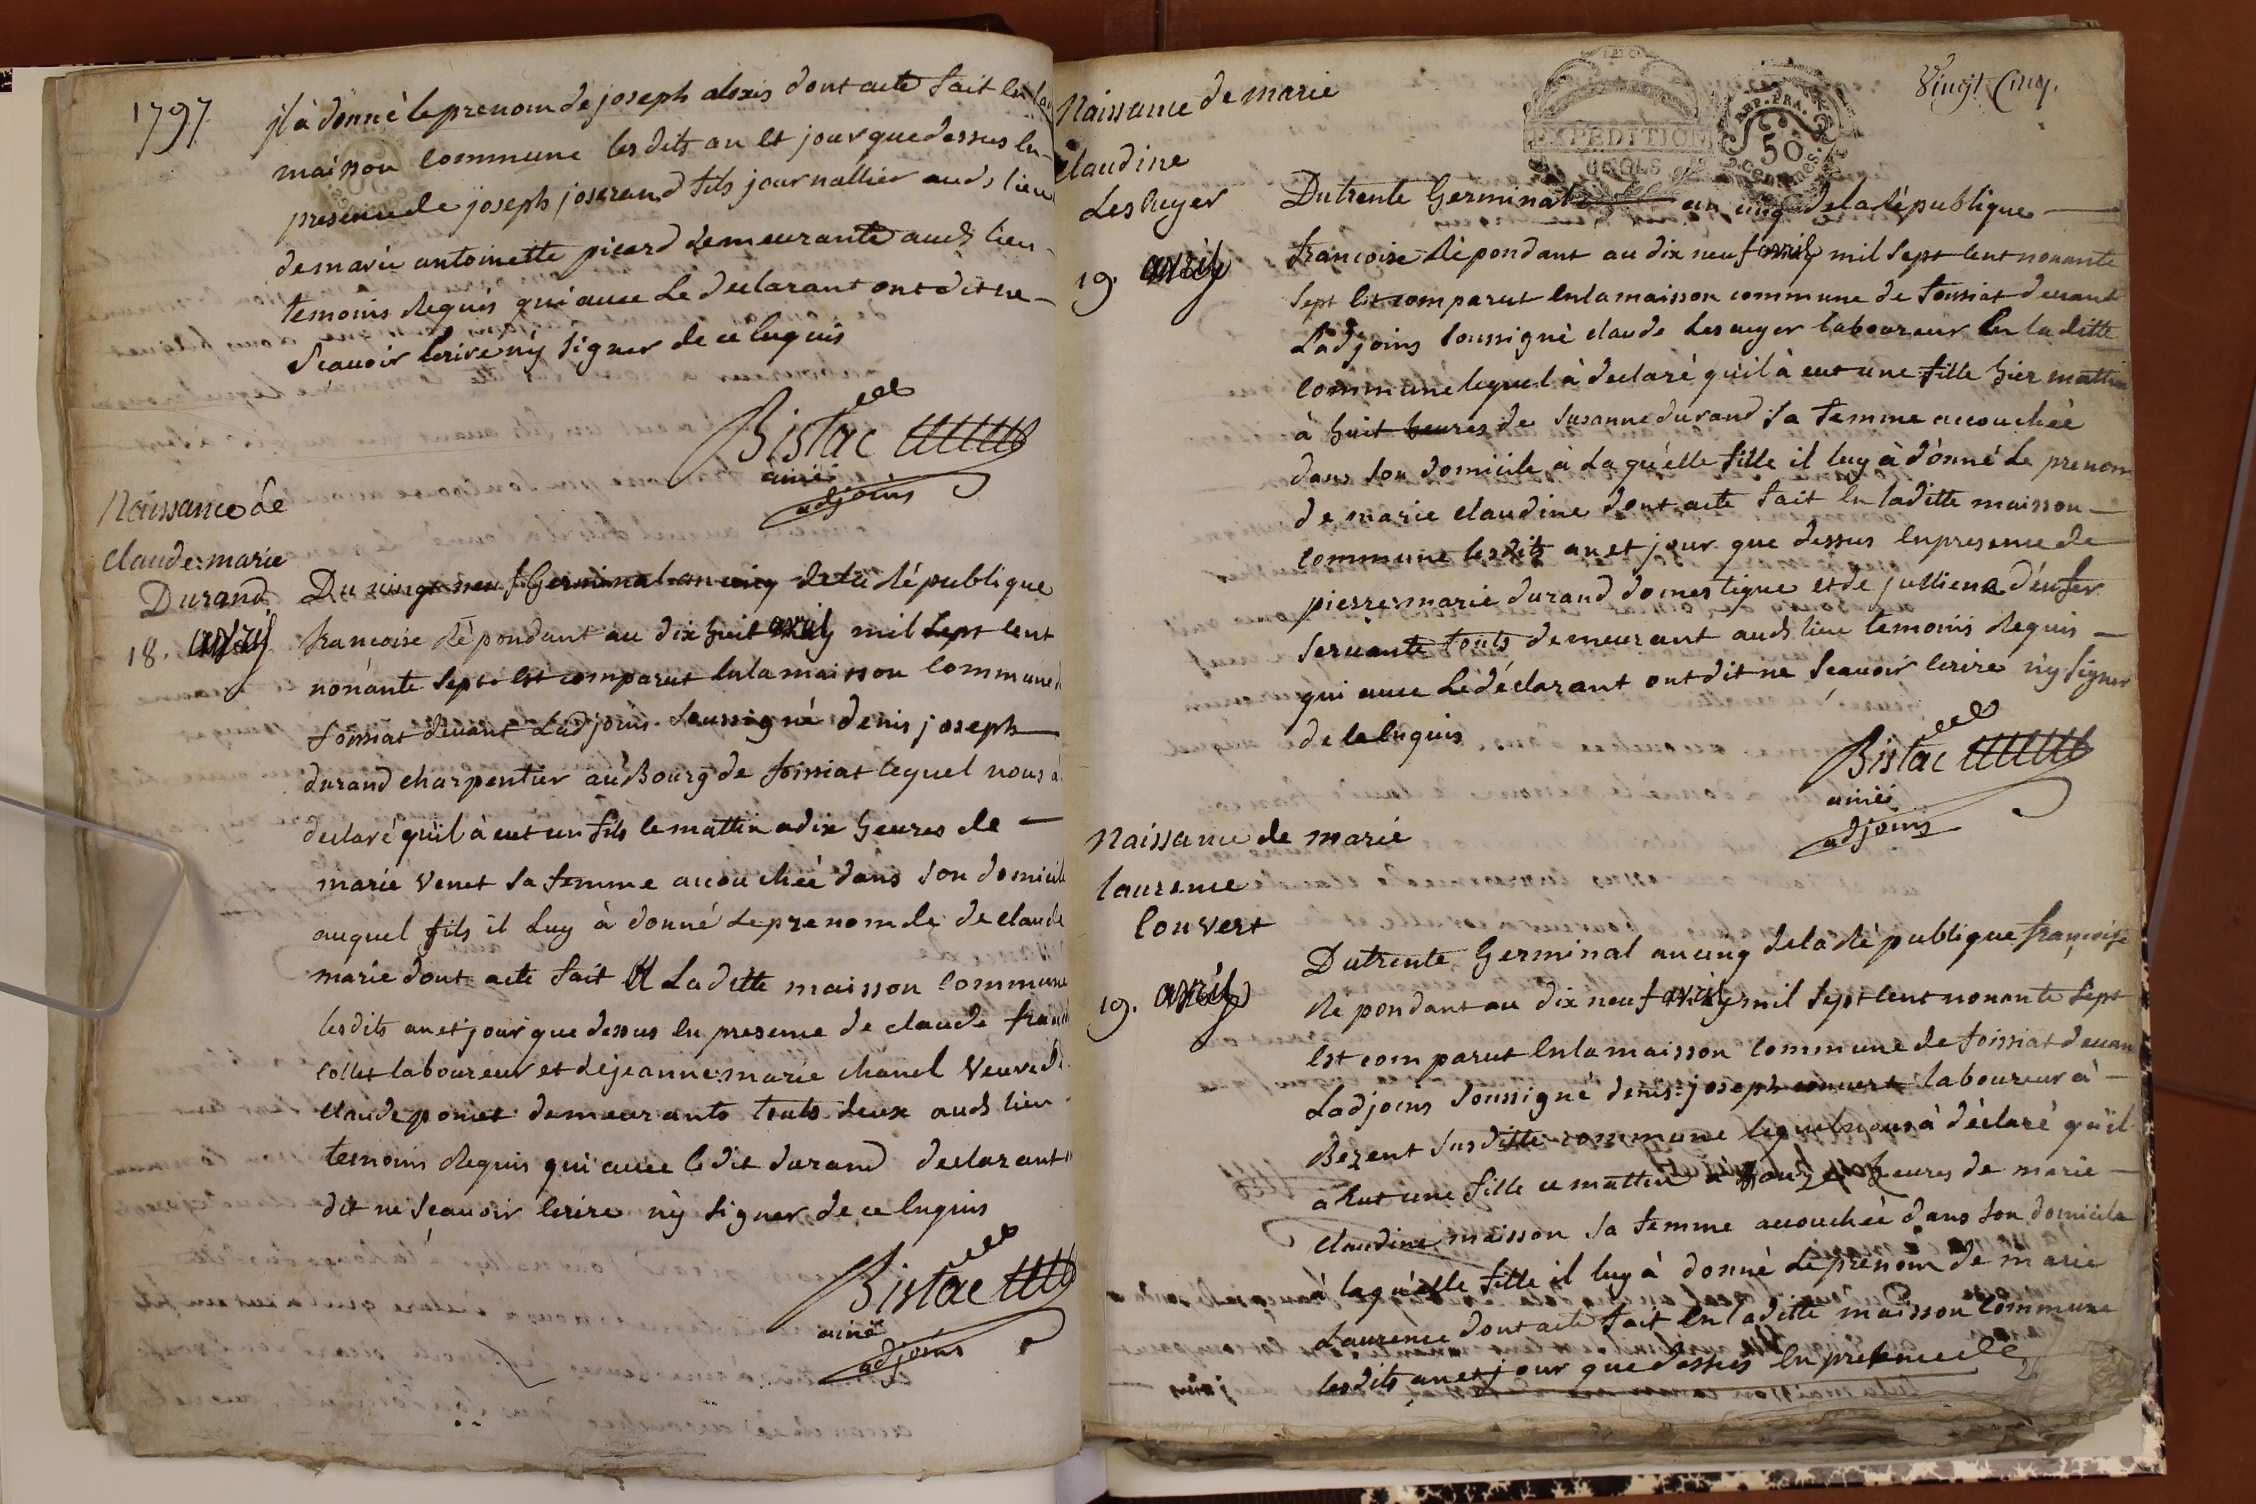 1797
jl à donné le prenom de joseph alexis dont acte fait en la
maison commune lesdits an et jour que dessus en
presence de joseph joserand fils journallier auds lieu
de marie antoinette picard demeurante auds lieu
temoins requis qui avec le declarant ont dit ne
scavoir écrire ny signer de ce enquis
Bistac
ainé
adjoins
Naissance de
claude marie
Durand
18. avril
Du vingt neuf Germinal an cinq de la république
francoise répondant au dix huit avril mil sept cent
nonante sept est comparut en la maison commune
foissiat devant Ladjoins soussigné denis joseph
durand charpentier au Bourg de foissiat lequel nous à
declaré qu'il à eut un fils ce mattin a dix heures de
marie venet sa femme accouchée dans son domicile
auquel fils il luy à donné le prenom de de claude
marie dont acte fait et La ditte maison commune
lesdits an et jour que dessus en presence de claude
collet laboureur et de jeanne marie chanel veuve de
claude poncet demeurants touts deux auds lieu
temoins requis qui avec le dit durand declarant
dit ne scavoir écrire ny signer de ce enquis
Bistac
ainé
adjoins
Vingt Cinq.
EXPEDITION
REP. FRA.
50
Centimes
Naissance de marie
claudine
Lescuyer
19. avril
Du trente Germinal an cinq de la république
francoise répondant au dix neuf avril mil sept cent nonante
sept est comparut en la maison commune de foissiat devant
Ladjoins soussigné claude Lescuyer laboureur en la ditte
commune lequel à declaré qu'il à eut une fille hier mattin
à huit heures de susanne durand sa femme accouchée
dans son domicile à La qu'elle fille il luy à donné Le prenom
de marie claudine dont acte fait en laditte maison
commune lesdits an et jour que dessus en presence de
pierre marie durand domestique et de julliene
servante touts demeurant auds lieu temoins requis
qui avec Le déclarant ont dit ne scavoir écrire ny signer
de ce enquis
Bistac
ainé
adjoins
Naissance de marie
laurence
Convert
19. avril
Du trente Germinal an cinq de la république françoise
répondant au dix neuf avril mil sept cent nonante sept
est comparut en la maison commune de foissiat devant
Ladjoins soussigné denis joseph convert laboureur à
Bezent susditte commune lequel nous à déclaré qu'il
a eut une fille ce mattin à heures de marie
claudine maisson sa femme accouchée dans son domicile
à laqu'elle fille il luy à donné Le prénom de marie
Laurence dont acte fait en laditte maison commune
lesdits an et jour que dessus en presence de